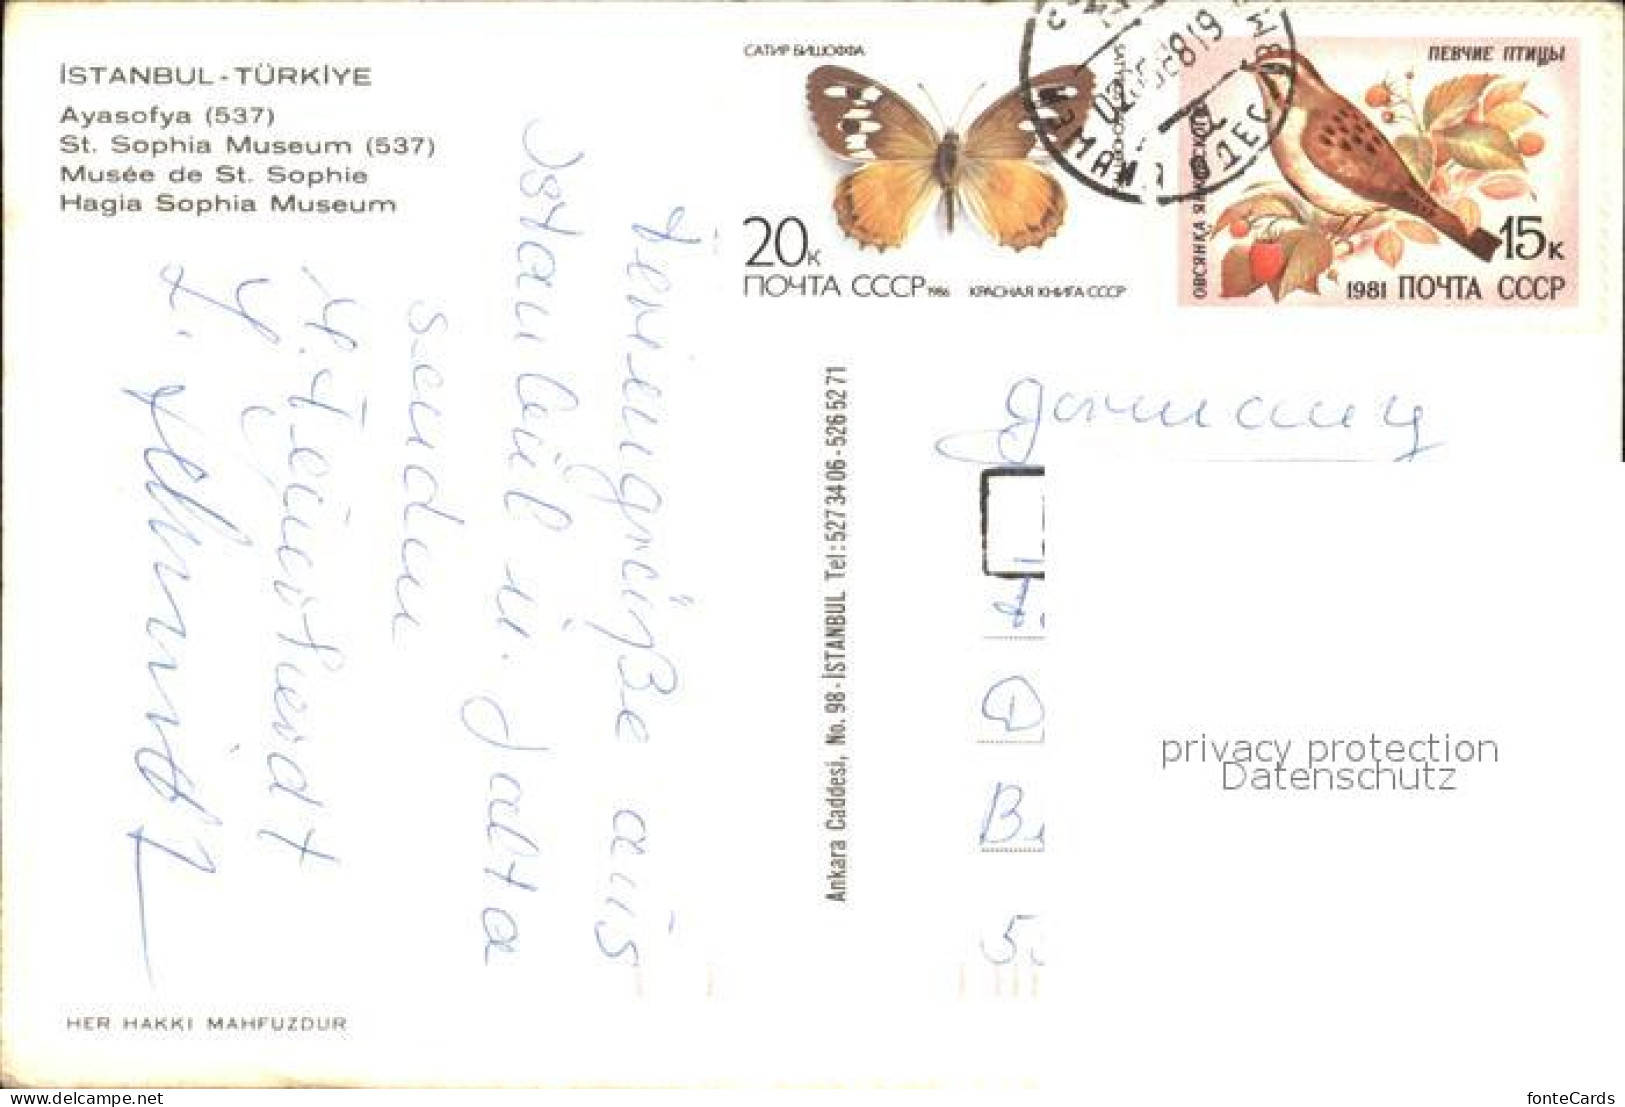 İSTANBUL - TÜRKİYE
Ayasofya (537)
St. Sophia Museum (537)
Musée de St. Sophie
Hagia Sophia Museum
САТИР БИШОФФА
20к
ПОЧТА СССР 1986 КРАСНАЯ КНИГА СССР
ПЕВЧИЕ ПТИЦЫ
ОВСЯНКА ЯНКОВСКОГО
15к
1981 ПОЧТА СССР
Feriengrüße aus
Istanbul u. Jalta
senden
Ankara Caddesi, No. 98 - İSTANBUL Tel: 527 34 06 - 526 52 71
Germany
privacy protection
Datenschutz
HER HAKKI MAHFUZDUR
www.delcampe.net
fonteCards